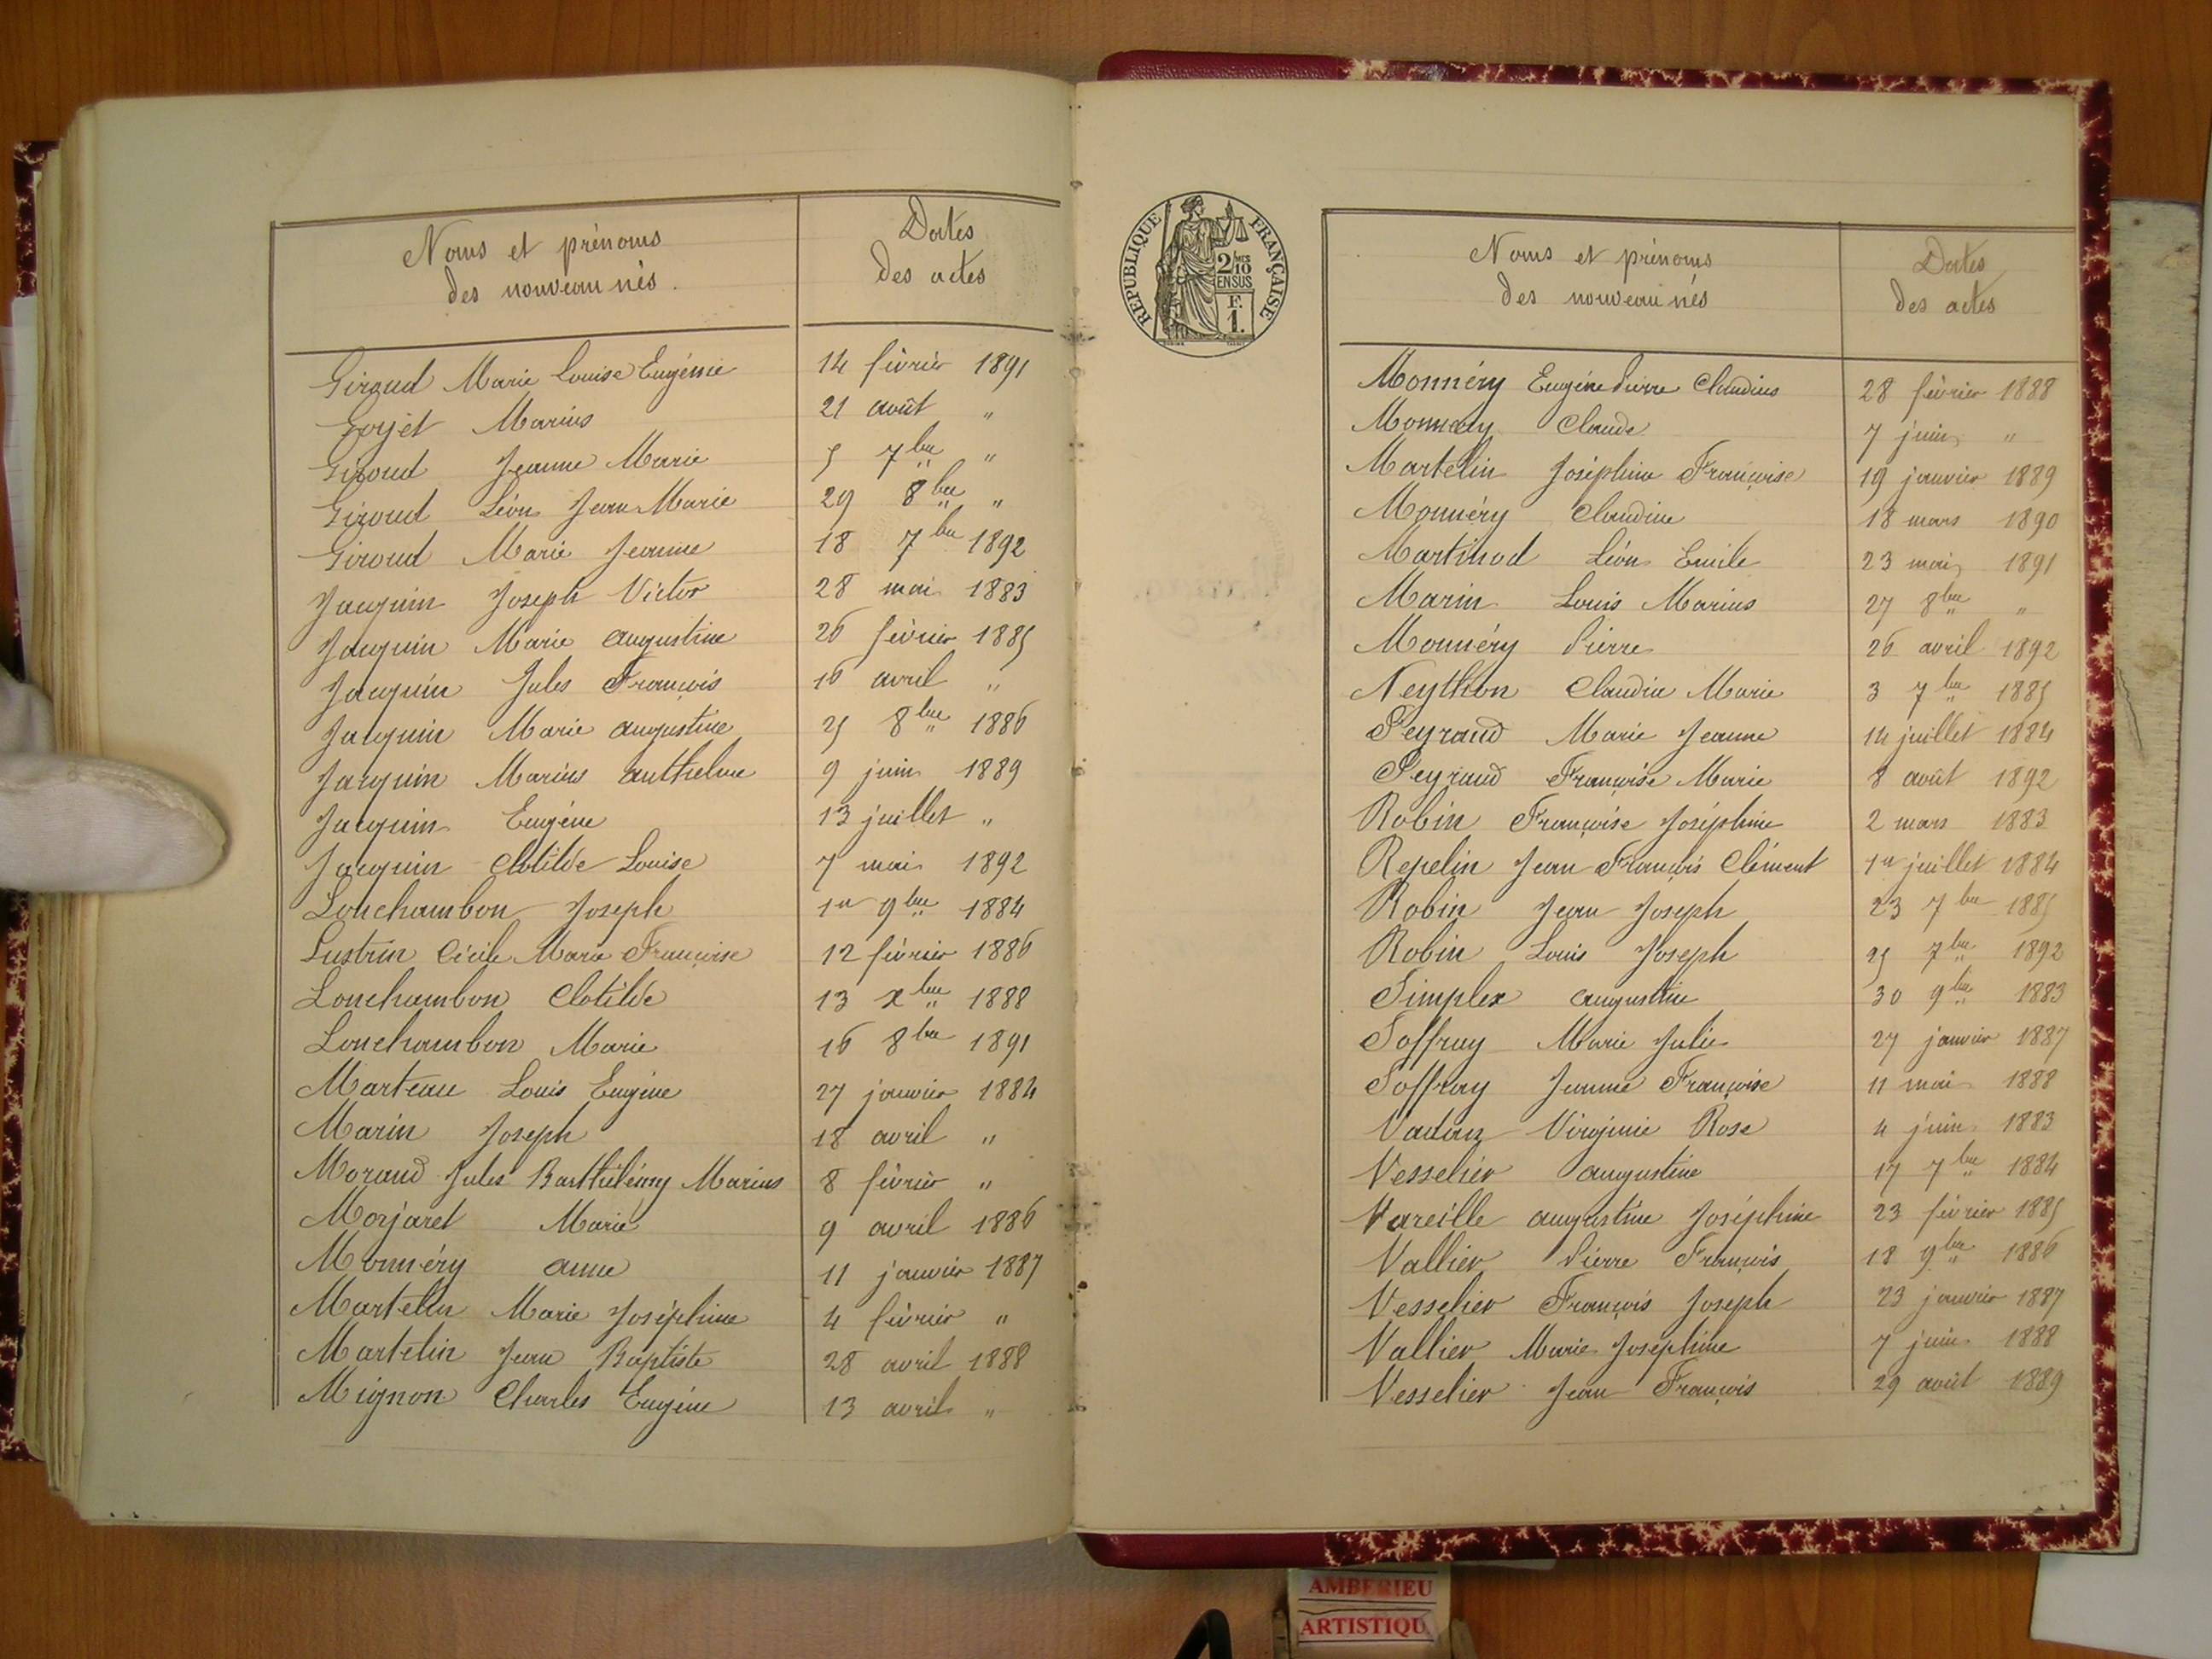 Noms et prénoms
des nouveau nés.
Dates
des actes
Giroud Marie Louise Eugénie 14 février 1891
Goyet Marius 21 août "
Giroud Jeanne Marie 5 7bre "
Giroud Léon Jean Marie 29 8bre "
Giroud Marie Jeanne 18 7bre 1892
Jacquin Joseph Victor 28 mai 1883
Jacquin Marie Augustine 26 février 1885
Jacquin Jules François 16 avril "
Jacquin Marie Augustine 25 8bre 1886
Jacquin Marius Anthelme 9 juin 1889
Jacquin Eugène 13 juillet "
Jacquin Clotilde Louise 7 mai 1892
Lonchambon Joseph 1er 9bre 1884
Lustrin Cécile Marie Françoise 12 février 1886
Lonchambon Clotilde 13 xbre 1888
Lonchambon Marie 16 8bre 1891
Marteau Louis Eugène 27 janvier 1884
Marin Joseph 18 avril "
Morand Jules Barthélémy Marius 8 février "
Morjaret Marie 9 avril 1886
Monnéry Anne 11 janvier 1887
Martelin Marie Joséphine 4 février "
Martelin Jean Baptiste 28 avril 1888
Mignon Charles Eugène 13 avril "
REPUBLIQUE FRANÇAISE
2/10 MES
EN SUS
F.
1.
Noms et prénoms
des nouveau nés
Dates
des actes
Monnéry Eugène Pierre Claudius 28 février 1888
Monnéry Claude 7 juin "
Martelin Joséphine Françoise 19 janvier 1889
Monnéry Claudine 18 mars 1890
Martinod Léon Emile 23 mai 1891
Marin Louis Marius 27 8bre "
Monnéry Pierre 26 avril 1892
Neython Claudine Marie 3 7bre 1885
Peyraud Marie Jeanne 14 juillet 1884
Peyraud Françoise Marie 8 août 1892
Robin Françoise Joséphine 2 mars 1883
Repelin Jean François Clément 1er juillet 1884
Robin Jean Joseph 23 7bre 1885
Robin Louis Joseph 25 7bre 1892
Simplex Augustine 30 9bre 1883
Soffray Marie Julie 27 janvier 1887
Soffray Jeanne Françoise 11 mai 1888
Vadan Virginie Rose 4 juin 1883
Vesselier Augustine 17 7bre 1884
Vareille Augustine Joséphine 23 février 1885
Vallier Pierre François 18 9bre 1886
Vesselier François Joseph 23 janvier 1887
Vallier Marie Joséphine 7 juin 1888
Vesselier Jean François 29 août 1889
AMBERIEU
ARTISTIQU